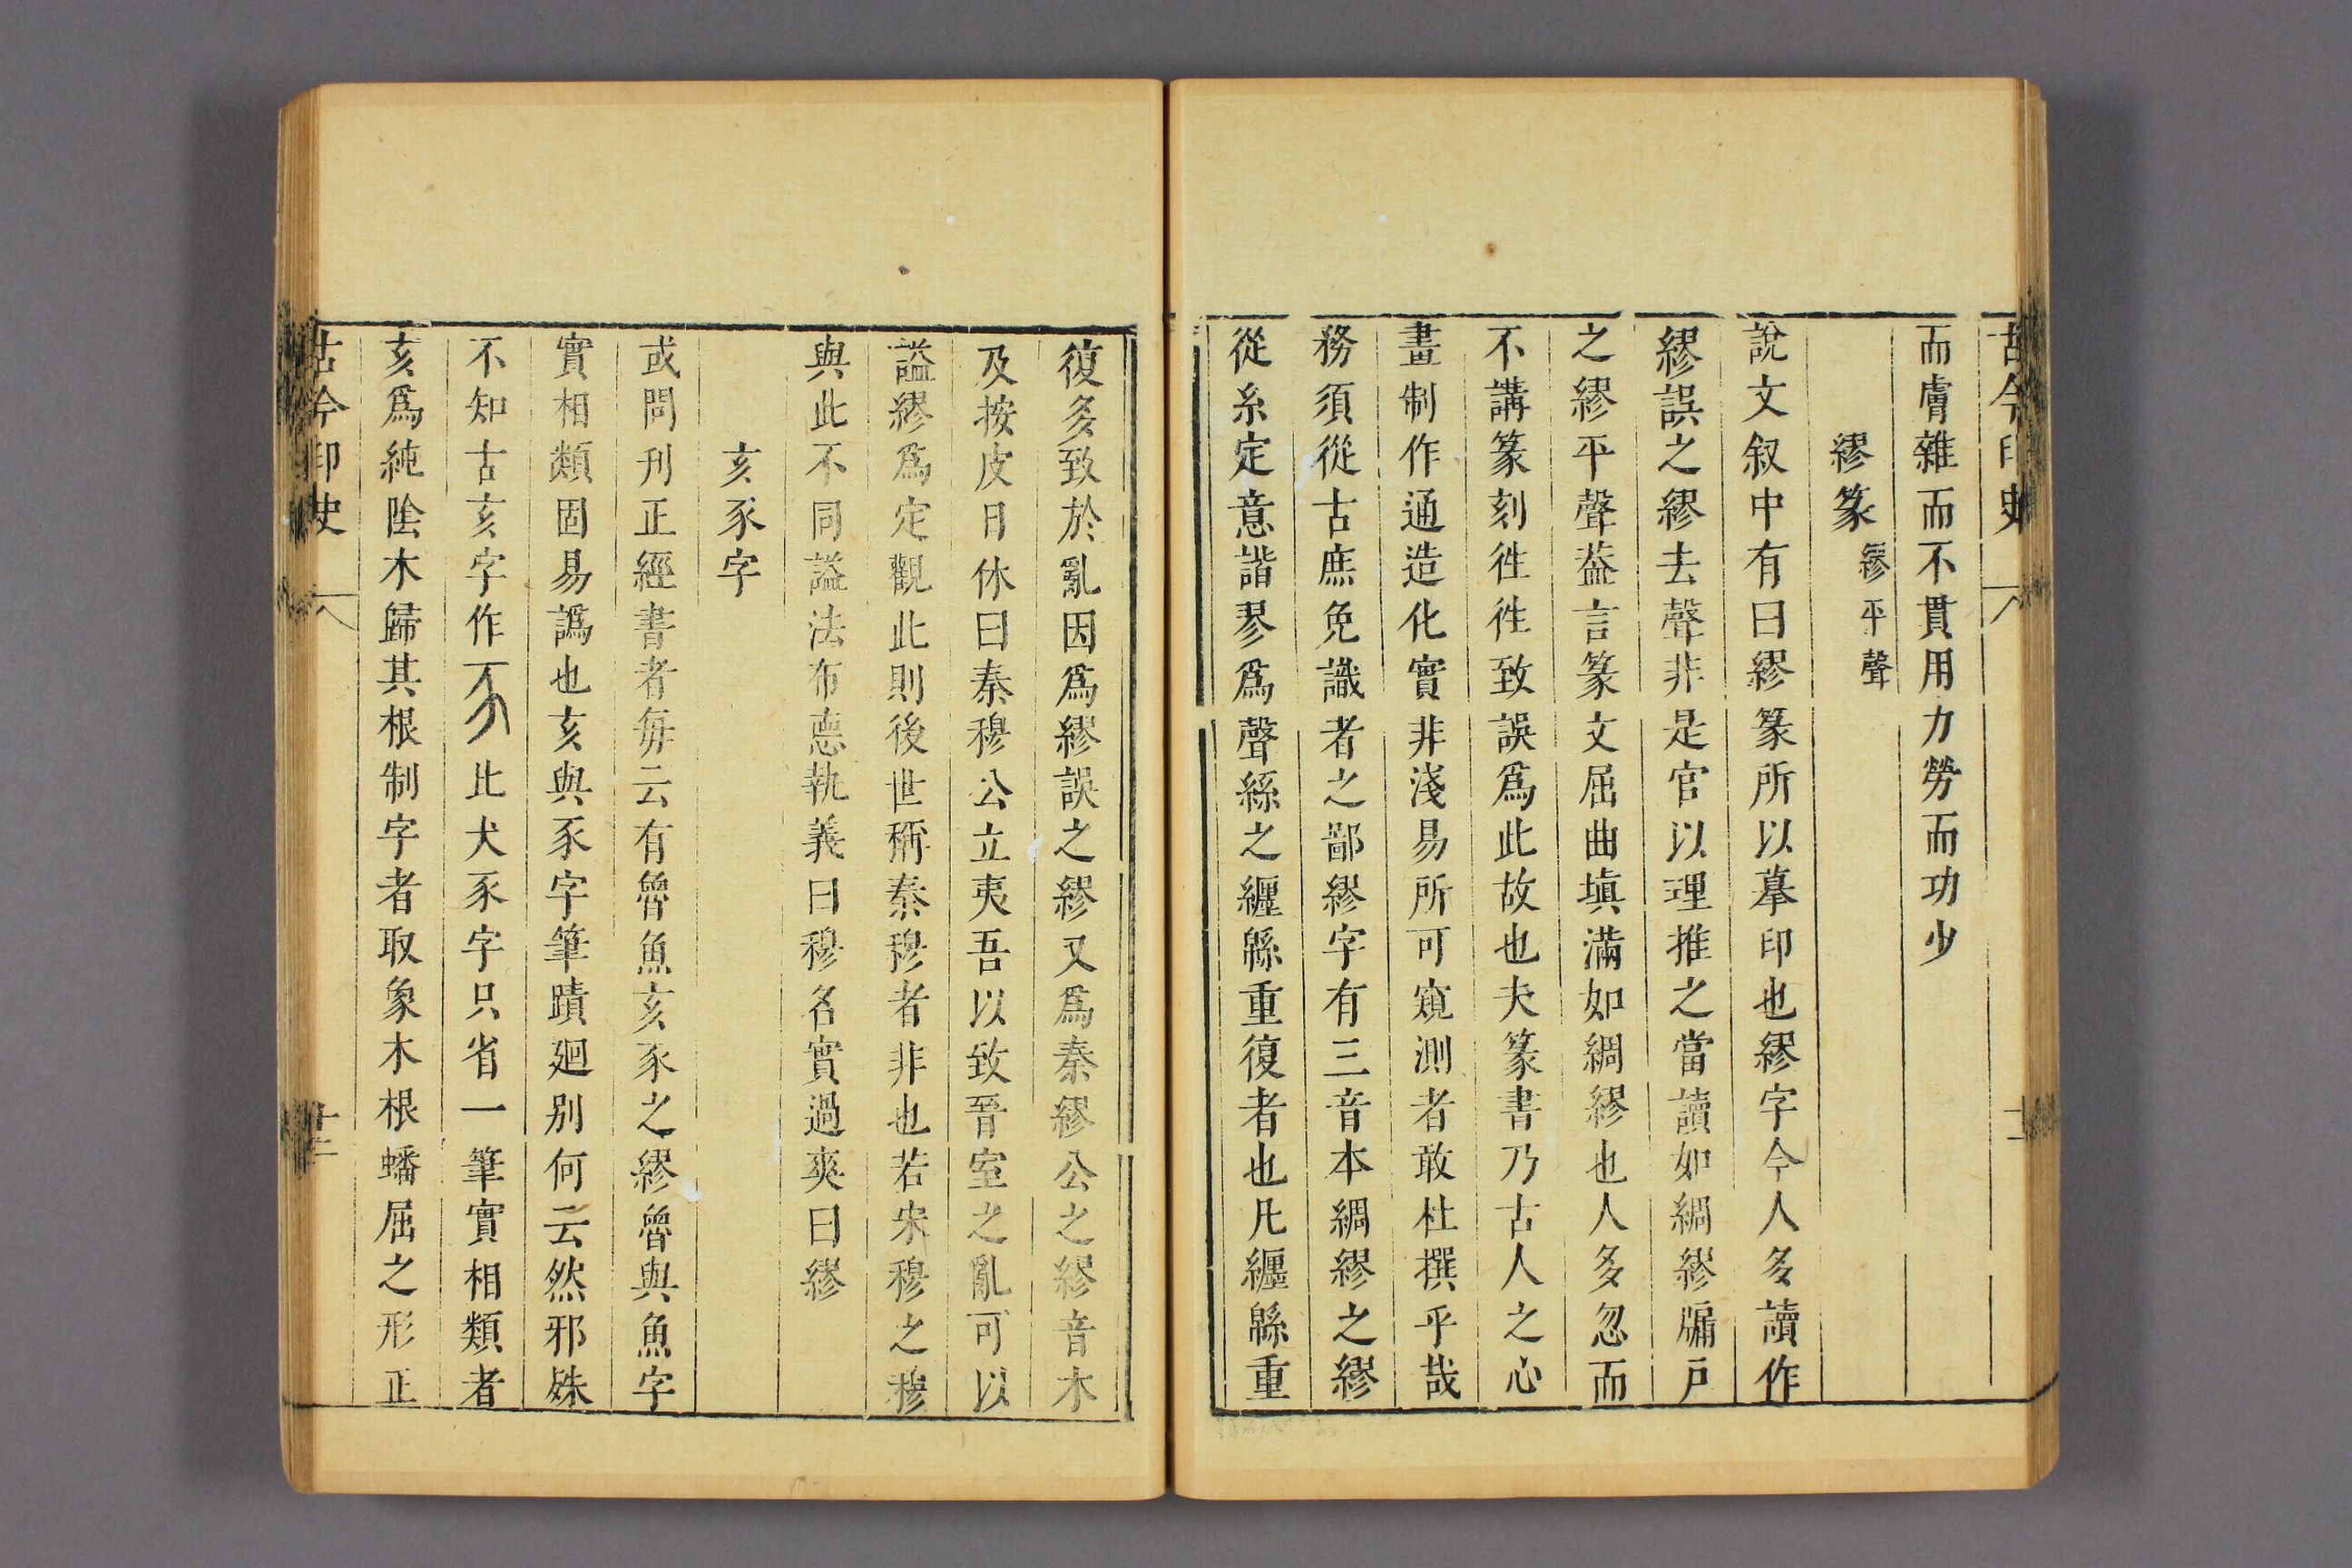 古今印史
而膚雜而不貫用力勞而功少
繆篆 繆平聲
說文叙中有曰繆篆所以摹印也繆字今人多讀作
繆誤之繆去聲非是官以理推之當讀如綢繆牖戸
之繆平聲葢言篆文屈曲塡滿如綢繆也人多忽而
不講篆刻徃徃致誤爲此故也夫篆書乃古人之心
畫制作通造化實非淺易所可窺測者敢杜撰乎哉
務須從古庶免識者之鄙繆字有三音本綢繆之繆
從糸定意諧翏爲聲絲之纒緜重復者也凡纒緜重
復多致於亂因爲繆誤之繆又爲秦繆公之繆音木
及按皮日休曰秦穆公立夷吾以致晉室之亂可以
謚繆爲定觀此則後世稱秦穆者非也若宋穆之穆
與此不同謚法布悳執義曰穆名實過爽曰繆
亥豕字
或問刋正經書者每云有魯魚亥豕之繆魯與魚字
實相類固易譌也亥與豕字筆蹟廻别何云然邪殊
不知古亥字作𠀬比犬豕字只省一筆實相類者
亥爲純陰木歸其根制字者取象木根蟠屈之形正
古今印史